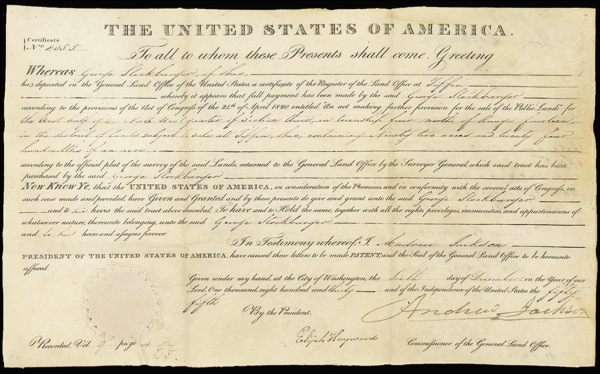 THE UNITED STATES OF AMERICA.
Certificate
No. 4055
To all to whom these Presents shall come, Greeting
Whereas George Stockbarger, of Ohio
has deposited in the General Land Office of the United States, a certificate of the Register of the Land Office at Tiffin
whereby it appears that full payment has been made by the said George Stockbarger
according to the provisions of the Act of Congress of the 24th of April 1820 entitled "An act making further provision for the sale of the Public Lands" for
the West half of the North West quarter of Section three, in township four north of Range
in the district of lands subject to sale at Tiffin, Ohio, containing Ninety two acres and twenty four
hundredths of an acre
according to the official plat of the survey of the said Lands, returned to the General Land Office by the Surveyor General, which said tract has been
purchased by the said George Stockbarger
Now Know Ye, that the UNITED STATES OF AMERICA, in consideration of the Premises, and in conformity with the several acts of Congress, in
such case made and provided, have Given and Granted, and by these presents do give and grant unto the said George Stockbarger
and to his heirs the said tract above described. To have and to Hold the same, together with all the rights privileges, immunities, and appurtenances of
whatsoever nature, thereunto belonging unto the said George Stockbarger
and to his heirs and assigns forever.
In Testimony whereof, I Andrew Jackson
PRESIDENT OF THE UNITED STATES OF AMERICA, have caused these letters to be made PATENT, and the Seal of the General Land Office to be hereunto
affixed.
Given under my hand, at the City of Washington, the day of December in the Year of our
Lord One thousand, eight hundred and thirty and of the Independence of the United States the fifty
fifth
By the President,
Andrew Jackson
Elijah Hayward
Commissioner of the General Land Office.
Recorded, Vol 9 page